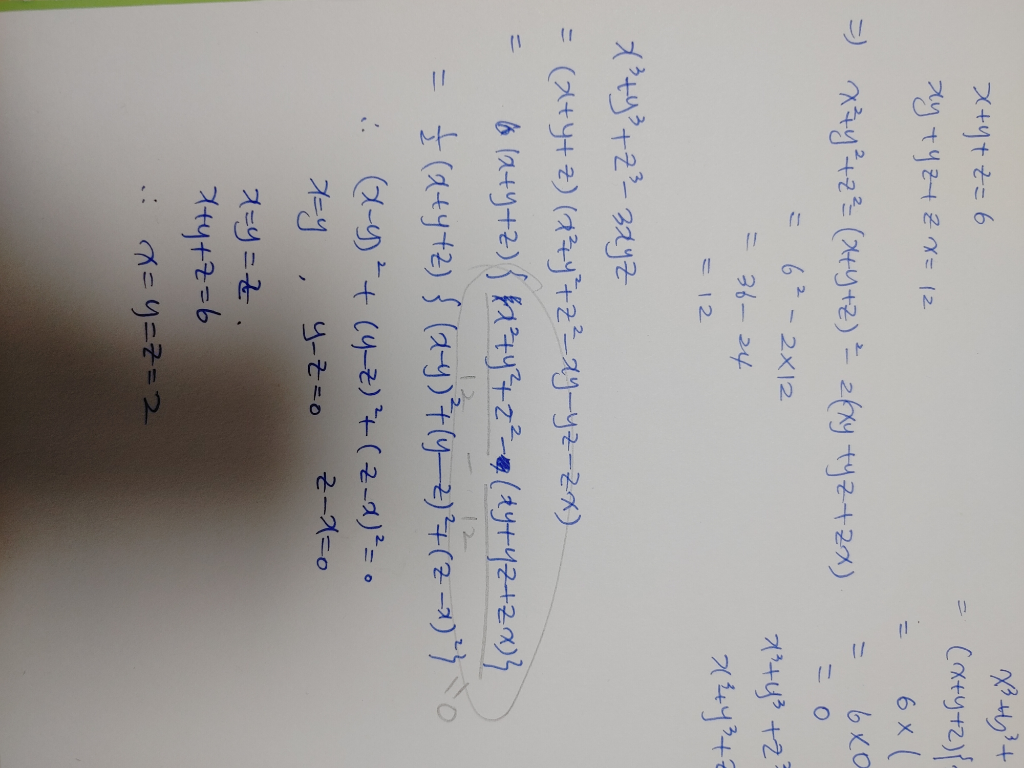 x+y+z=6
xy+yz+zx=12
⇒ x²+y²+z²=(x+y+z)²-2(xy+yz+zx)
= 6²-2×12
= 36-24
= 12
x³+y³+z³-3xyz
= (x+y+z)(x²+y²+z²-xy-yz-zx)
= 6(x+y+z){x²+y²+z²-(xy+yz+zx)}
12 - 12
= ½(x+y+z){(x-y)²+(y-z)²+(z-x)²} = 0
∴ (x-y)²+(y-z)²+(z-x)²=0
x=y, y-z=0 z-x=0
x=y=z.
x+y+z=6
∴ x=y=z=2
x³+y³+
= (x+y+z){
= 6×(
= 6×0
= 0
x³+y³+z³
x³+y³+z